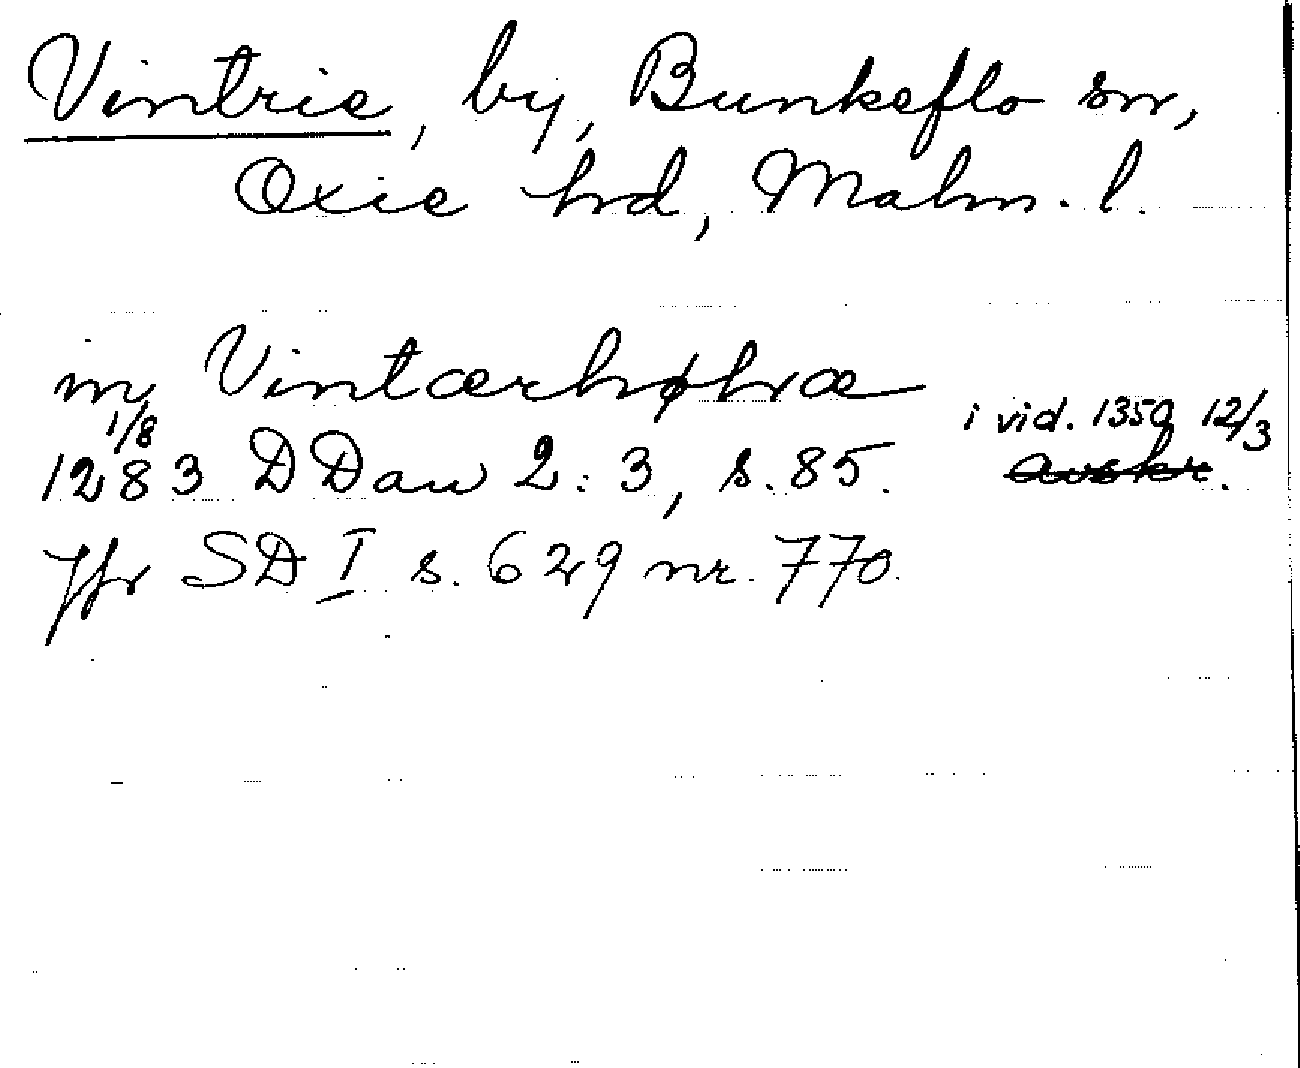 Vintrie, by, Bunkeflo sn,
Oxie hd, Malm. l.
in Vintærhøhræ
1283 1/8 DDan 2:3, s. 85. i vid. 1350 12/3
avskr.
Jfr SD I s. 629 nr. 770.